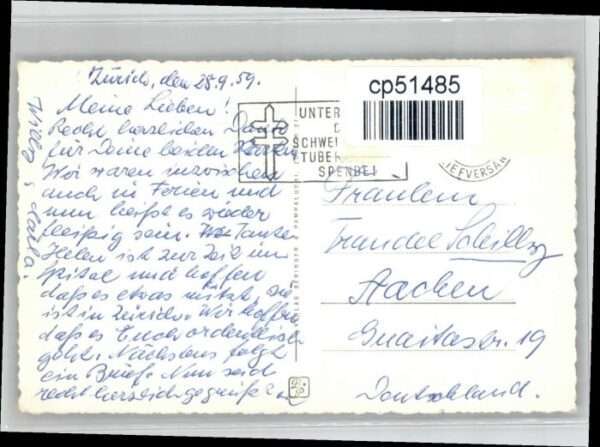 Zürich, den 28.9.59.
Meine Lieben!
Recht herzlichen Dank
für Deine beiden Karten
Wir waren inzwischen
auch in Ferien und
nun heißt es wieder
fleißig sein. Tante
Helen ist zur Zeit im
Spital und hoffen
daß es etwas nützt, sie
ist in Zürich. Wir hoffen
daß es Euch ordentlich
geht. Nächstens folgt
ein Brief. Nun seid
recht herzlich gegrüßt
Willy
UNTER
SCHWEI
TUBER
SPENDE!
cp51485
IEFVERSAN
Fräulein
Traudel Schillg
Aachen
Guaitastr. 19
Deutschland.